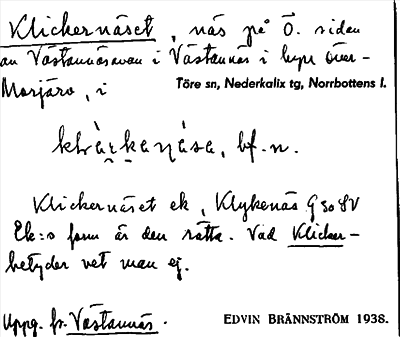 Klickernäset, näs på Ö. sidan
av Västannäsavan i Västannäs i byn Över-
Morjärv, i Töre sn, Nederkalix tg, Norrbottens l.
bf. n.
Klickernäset ek, Klykenäs G 50 SV
Ek:s form är den rätta. Vad Klicker-
betyder vet man ej.
Uppg. fr. Västannäs.
EDVIN BRÄNNSTRÖM 1938.